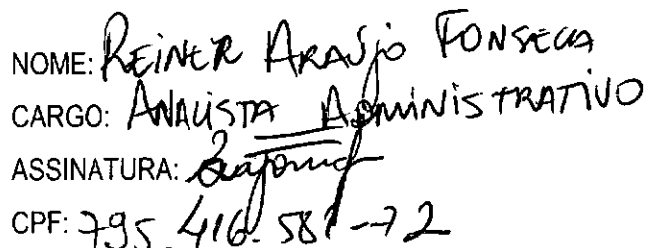 NOME: REINER ARAUJO FONSECA
CARGO: ANALISTA ADMINISTRATIVO
ASSINATURA:
CPF: 795.416.581-72